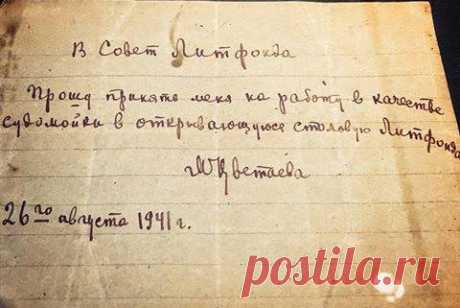 В Совет Литфонда
Прошу принять меня на работу в качестве
судомойки в открывающуюся столовую Литфонда
МЦветаева
26го августа 1941 г.
postila.ru